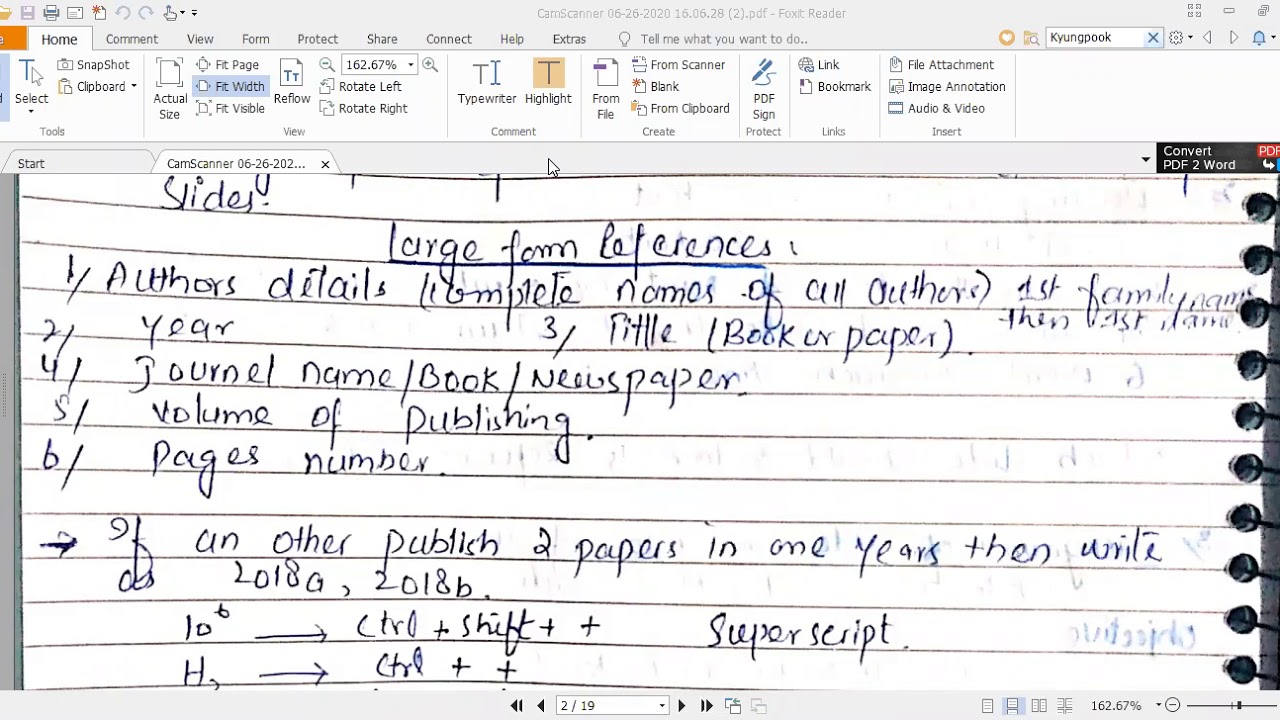 CamScanner 06-26-2020 16.06.28 (2).pdf - Foxit Reader
Home Comment View Form Protect Share Connect Help Extras Tell me what you want to do.. Kyungpook
Select SnapShot Clipboard Tools
Actual Size Fit Page Fit Width Fit Visible Reflow 162.67% Rotate Left Rotate Right View
Typewriter Highlight Comment
From File From Scanner Blank From Clipboard Create
PDF Sign Protect
Link Bookmark Links
File Attachment Image Annotation Audio & Video Insert
Start CamScanner 06-26-202... Convert PDF 2 Word PDF
Slides!
Large form References:
1/ Authors details (complete names of all authors) 1st family name
then 1st name
2/ Year 3/ Tittle (Book or paper).
4/ Journel name/Book/Newspaper.
5/ Volume of publishing.
6/ Pages number.
→ If an other publish 2 papers in one years then write
as 2018a, 2018b.
10⁶ → Ctrl + Shift + + Superscript.
H₂ → Ctrl + +
2 / 19 162.67%